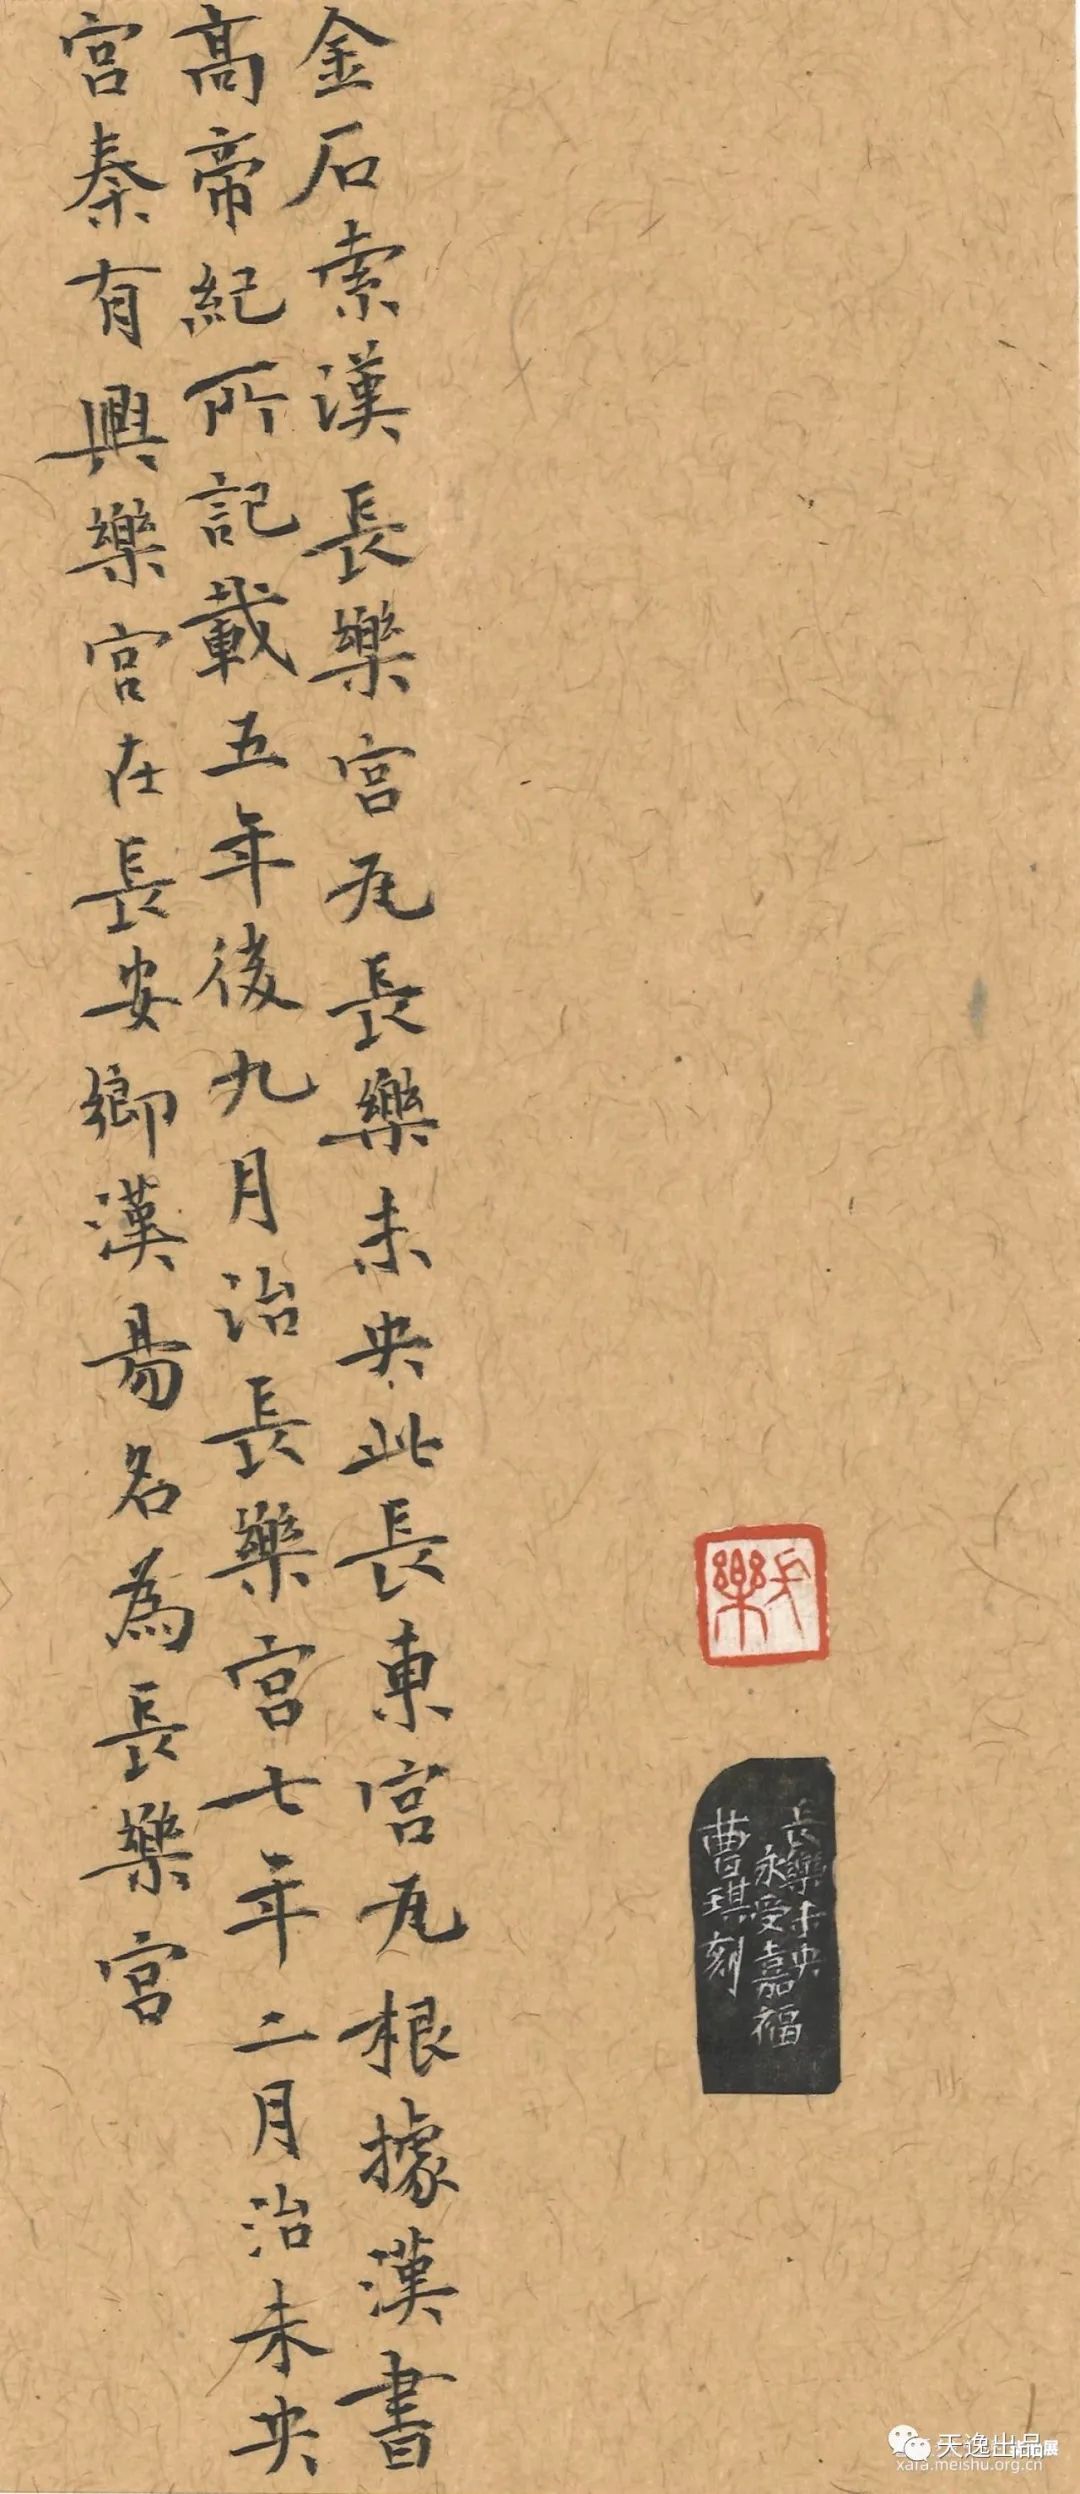 金石索漢長樂宮瓦長樂未央此長東宮瓦根據漢書
高帝紀所記載五年後九月治長樂宮七年二月治未央
宮秦有興樂宮在長安鄉漢易名為長樂宮
長樂
長樂未央
永受嘉福
曹琪刻
天逸出品
xafa.meishu.org.cn